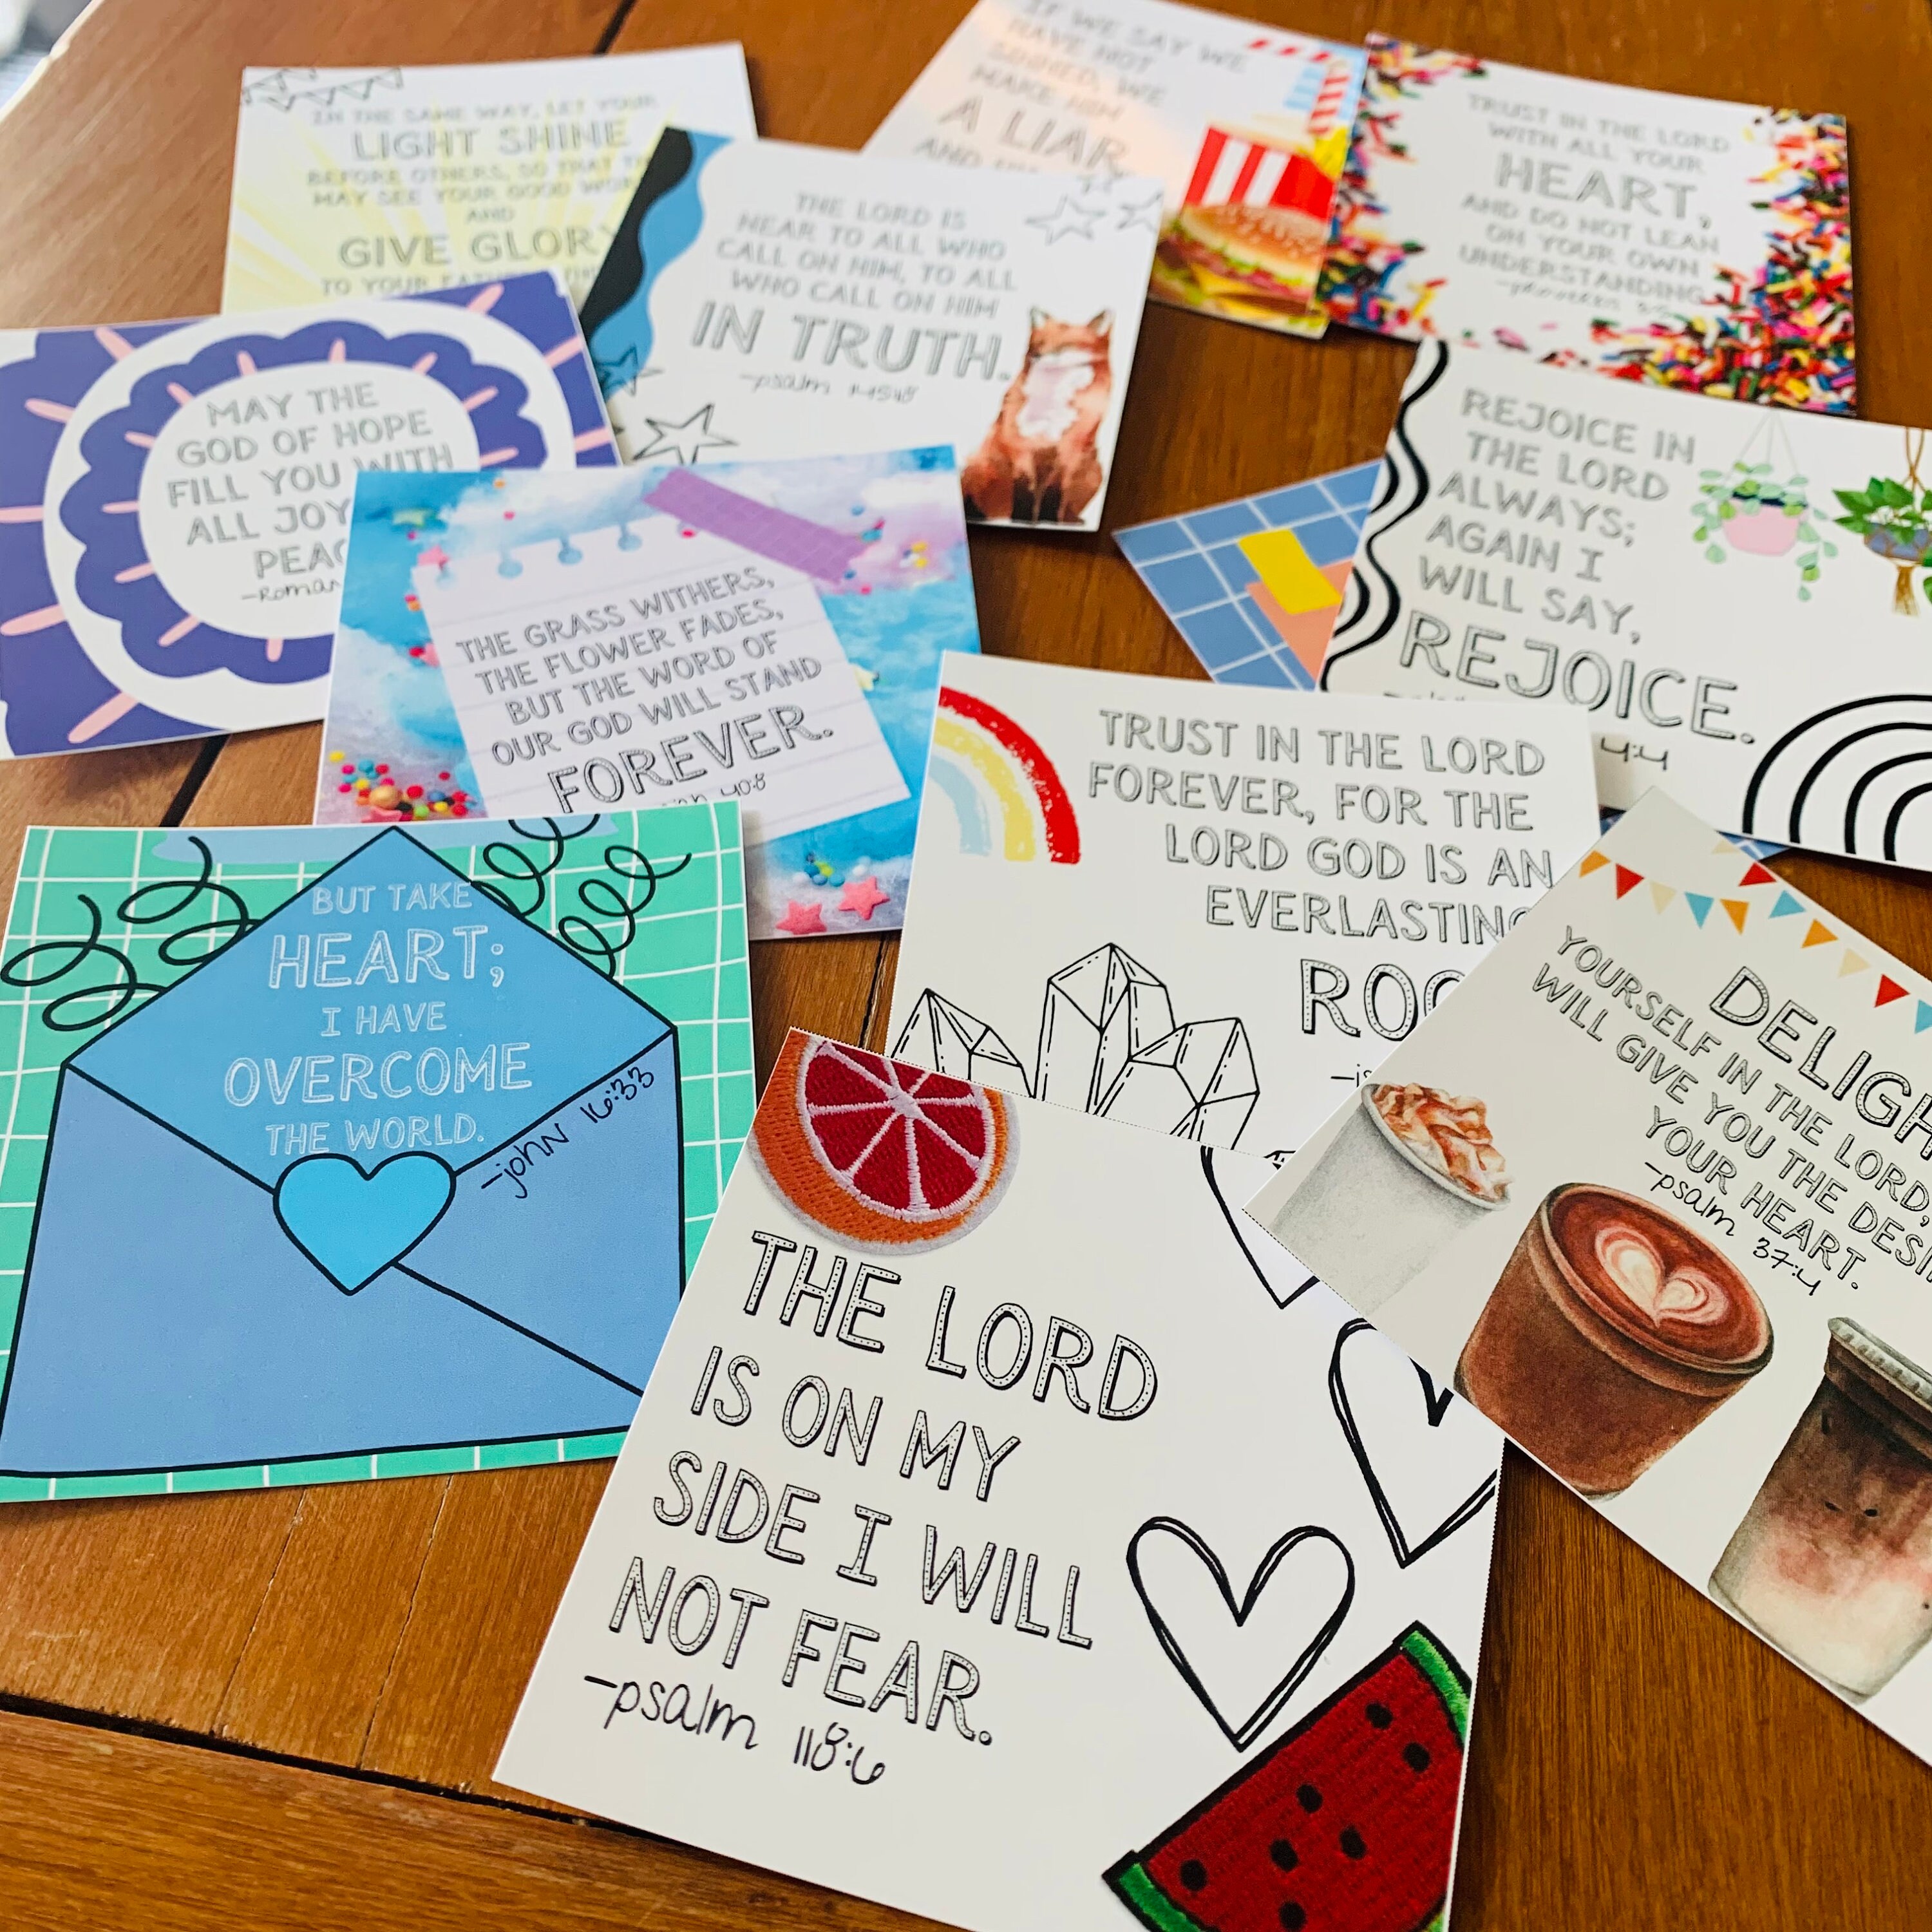 IN THE SAME WAY, LET YOUR
LIGHT SHINE
BEFORE OTHERS, SO THAT
MAY SEE YOUR GOOD
AND
GIVE GLORY
TO YOUR
IF WE SAY WE
HAVE NOT
SINNED, WE
MAKE HIM
A LIAR
TRUST IN THE LORD
WITH ALL YOUR
HEART,
AND DO NOT LEAN
ON YOUR OWN
UNDERSTANDING
THE LORD IS
NEAR TO ALL WHO
CALL ON HIM, TO ALL
WHO CALL ON HIM
IN TRUTH.
-psalm 145:18
MAY THE
GOD OF HOPE
FILL YOU WITH
ALL JOY
REJOICE IN
THE LORD
ALWAYS;
AGAIN I
WILL SAY,
REJOICE.
4:4
THE GRASS WITHERS,
THE FLOWER FADES,
BUT THE WORD OF
OUR GOD WILL STAND
FOREVER.
40:8
TRUST IN THE LORD
FOREVER, FOR THE
LORD GOD IS AN
EVERLASTING
BUT TAKE
HEART;
I HAVE
OVERCOME
THE WORLD.
-john 16:33
YOURSELF IN THE LORD,
WILL GIVE YOU THE
YOUR HEART.
-psalm 37:4
THE LORD
IS ON MY
SIDE I WILL
NOT FEAR.
-psalm 118:6